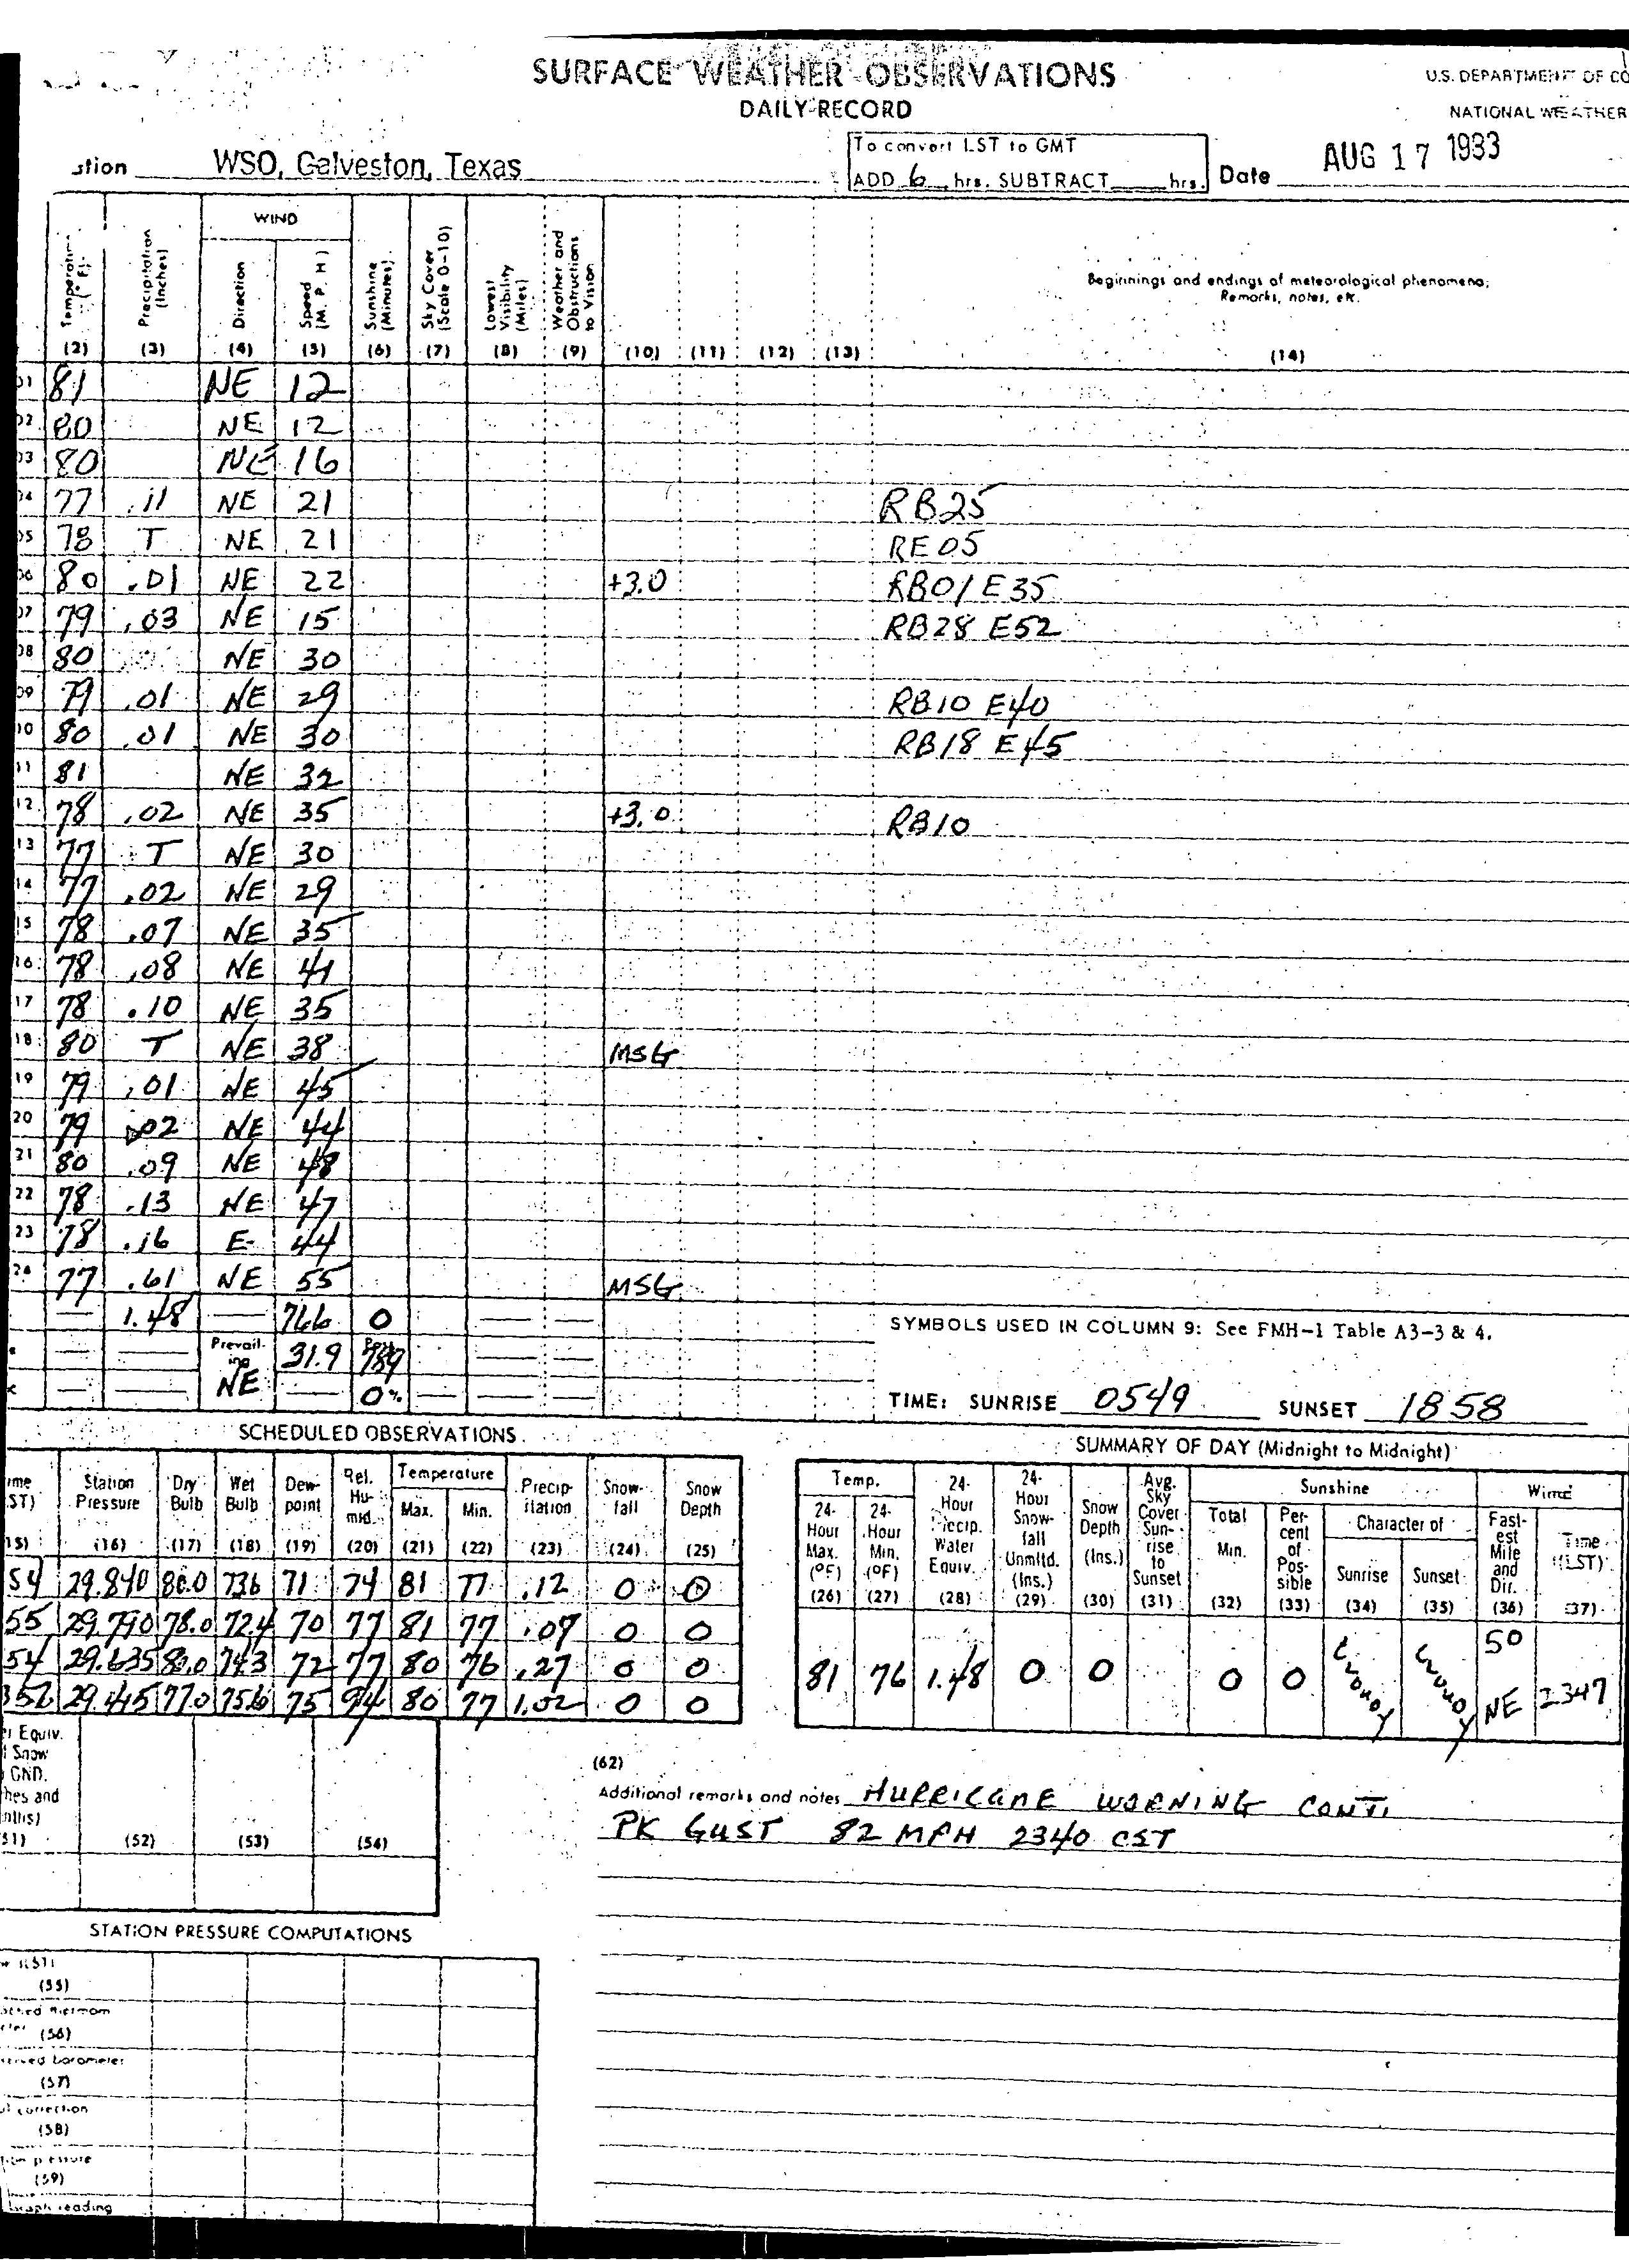 SURFACE WEATHER OBSERVATIONS
DAILY RECORD
U.S. DEPARTMENT OF CO
NATIONAL WEATHER
stion WSO, Galveston, Texas
To convert LST to GMT
ADD 6 hrs. SUBTRACT hrs.
Date AUG 17 1983
WIND
Temperature (° F)
Precipitation (Inches)
Direction
Speed (M. P. H)
Sunshine (Minutes)
Sky Cover (Scale 0-10)
Lowest Visibility (Miles)
Weather and Obstructions to Vision
Beginnings and endings of meteorological phenomena; Remarks, notes, etc.
(2) (3) (4) (5) (6) (7) (8) (9) (10) (11) (12) (13) (14)
01 81 NE 12
02 80 NE 12
03 80 NE 16
04 77 .11 NE 21 RB25
05 78 T NE 21 RE05
06 80 .01 NE 22 +3.0 RB01E35
07 79 .03 NE 15 RB28 E52
08 80 NE 30
09 79 .01 NE 29 RB10 E40
10 80 .01 NE 30 RB18 E45
11 81 NE 32
12 78 .02 NE 35 +3.0 RB10
13 77 T NE 30
14 77 .02 NE 29
15 78 .07 NE 35
16 78 .08 NE 41
17 78 .10 NE 35
18 80 T NE 38 MSG
19 79 .01 NE 45
20 79 .02 NE 44
21 80 .09 NE 48
22 78 .13 NE 47
23 78 .16 E 44
24 77 .61 NE 55 MSG
— 1.48 — 766 0
Prevailing NE 31.9 789
0%
SYMBOLS USED IN COLUMN 9: See FMH-1 Table A3-3 & 4.
TIME: SUNRISE 0549 SUNSET 1858
SCHEDULED OBSERVATIONS
Station Pressure
Dry Bulb
Wet Bulb
Dew point
Rel. Humid.
Temperature
Max. Min.
Precipitation
Snowfall
Snow Depth
(15) (16) (17) (18) (19) (20) (21) (22) (23) (24) (25)
54 29.840 80.0 73.6 71 74 81 77 .12 0 0
55 29.790 78.0 72.4 70 77 81 77 .07 0 0
54 29.635 80.0 74.3 72 77 80 76 .27 0 0
352 29.445 77.0 75.6 75 94 80 77 1.02 0 0
SUMMARY OF DAY (Midnight to Midnight)
Temp.
24-Hour Max. (°F)
24-Hour Min. (°F)
24-Hour Precip. Water Equiv.
24-Hour Snow-fall Unmltd. (Ins.)
Snow Depth (Ins.)
Avg. Sky Cover Sunrise to Sunset
Sunshine
Total Min.
Percent of Possible
Character of
Sunrise Sunset
Wind
Fastest Mile and Dir.
Time (LST)
(26) (27) (28) (29) (30) (31) (32) (33) (34) (35) (36) (37)
81 76 1.48 0 0 0 0 CLOUDY CLOUDY 50 NE 2347
Equiv.
Snow
GND.
hes and
(51) (52) (53) (54)
(62)
Additional remarks and notes HURRICANE WORNING CONT.
PK GUST 82 MPH 2340 CST
STATION PRESSURE COMPUTATIONS
(55)
(56)
barometer
(57)
correction
(58)
(59)
reading